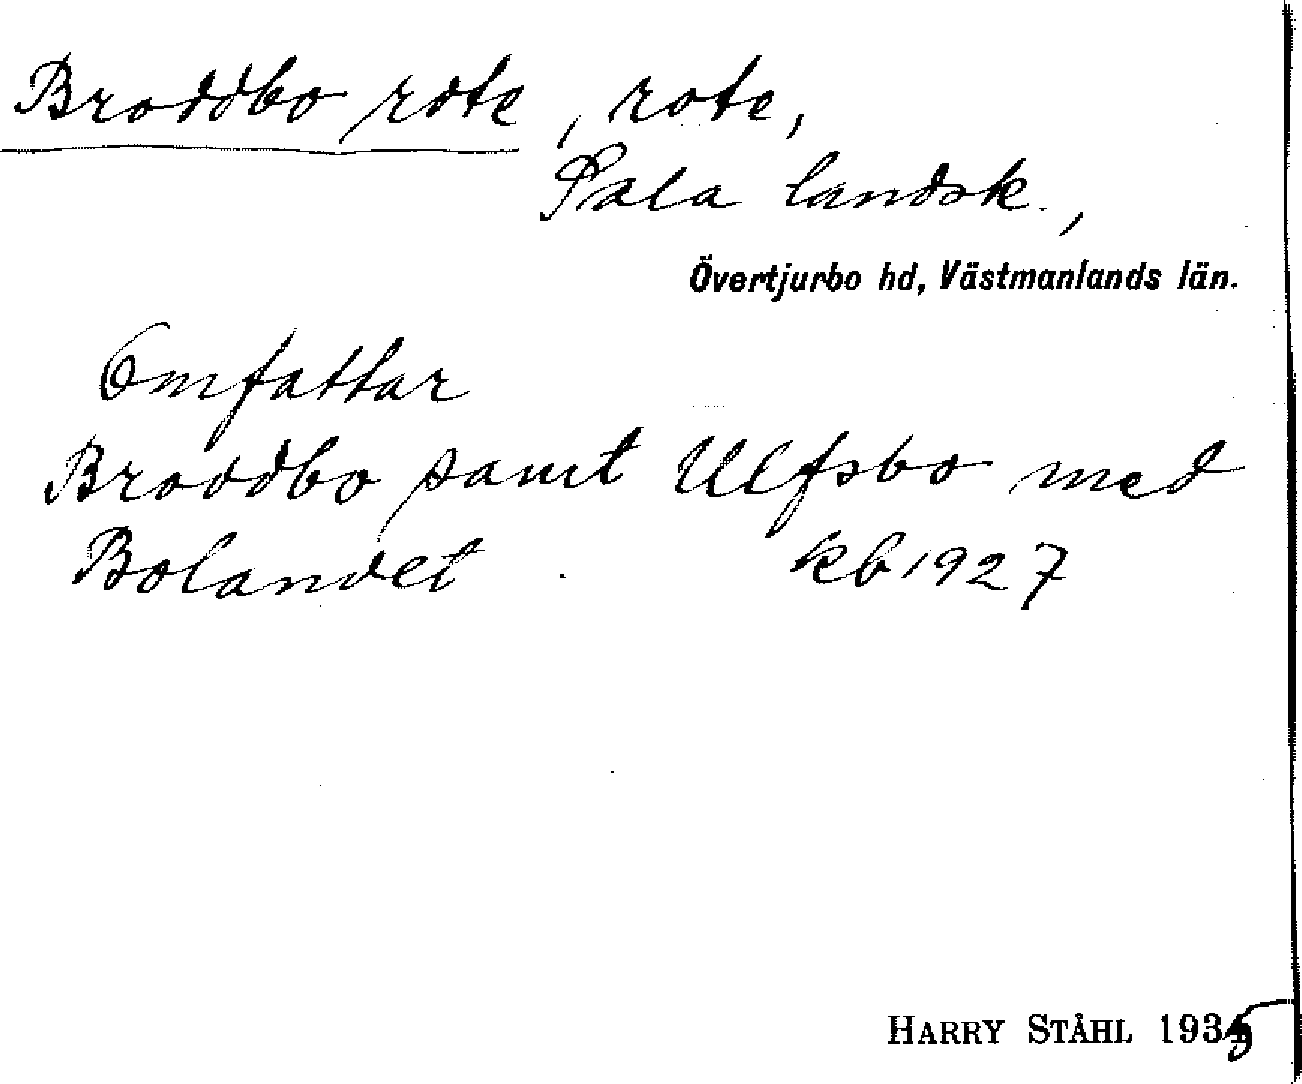 Broddbo rote, rote,
Sala landsk.,
Övertjurbo hd, Västmanlands län.
Omfattar
Broddbo samt Ulfsbo med
Bolandet kb 1927
HARRY STÅHL 1935